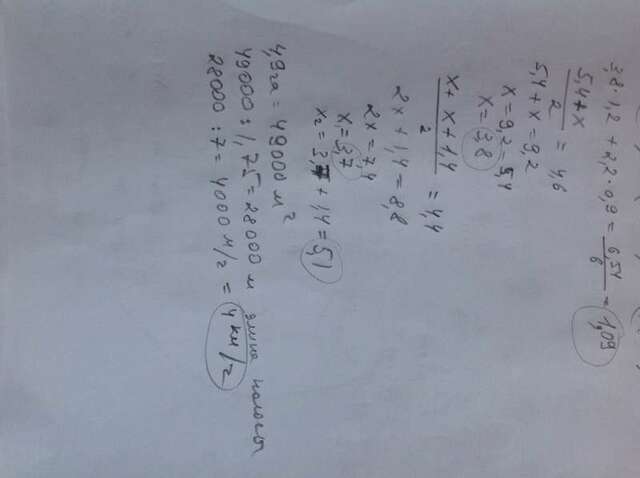 3,8·1,2 + 2,2·0,9 = 6,54/6 = 1,09
5,4+x/2 = 4,6
5,4 + x = 9,2
x = 9,2 - 5,4
x = 3,8
x + x + 1,4/2 = 4,4
2x + 1,4 = 8,8
2x = 7,4
x = 3,7
x₂ = 3,7 + 1,4 = 5,1
4,9га = 49000 м²
49000 : 1,75 = 28000 м длина полосы
28000 : 7 = 4000 м/г = 4 км/г